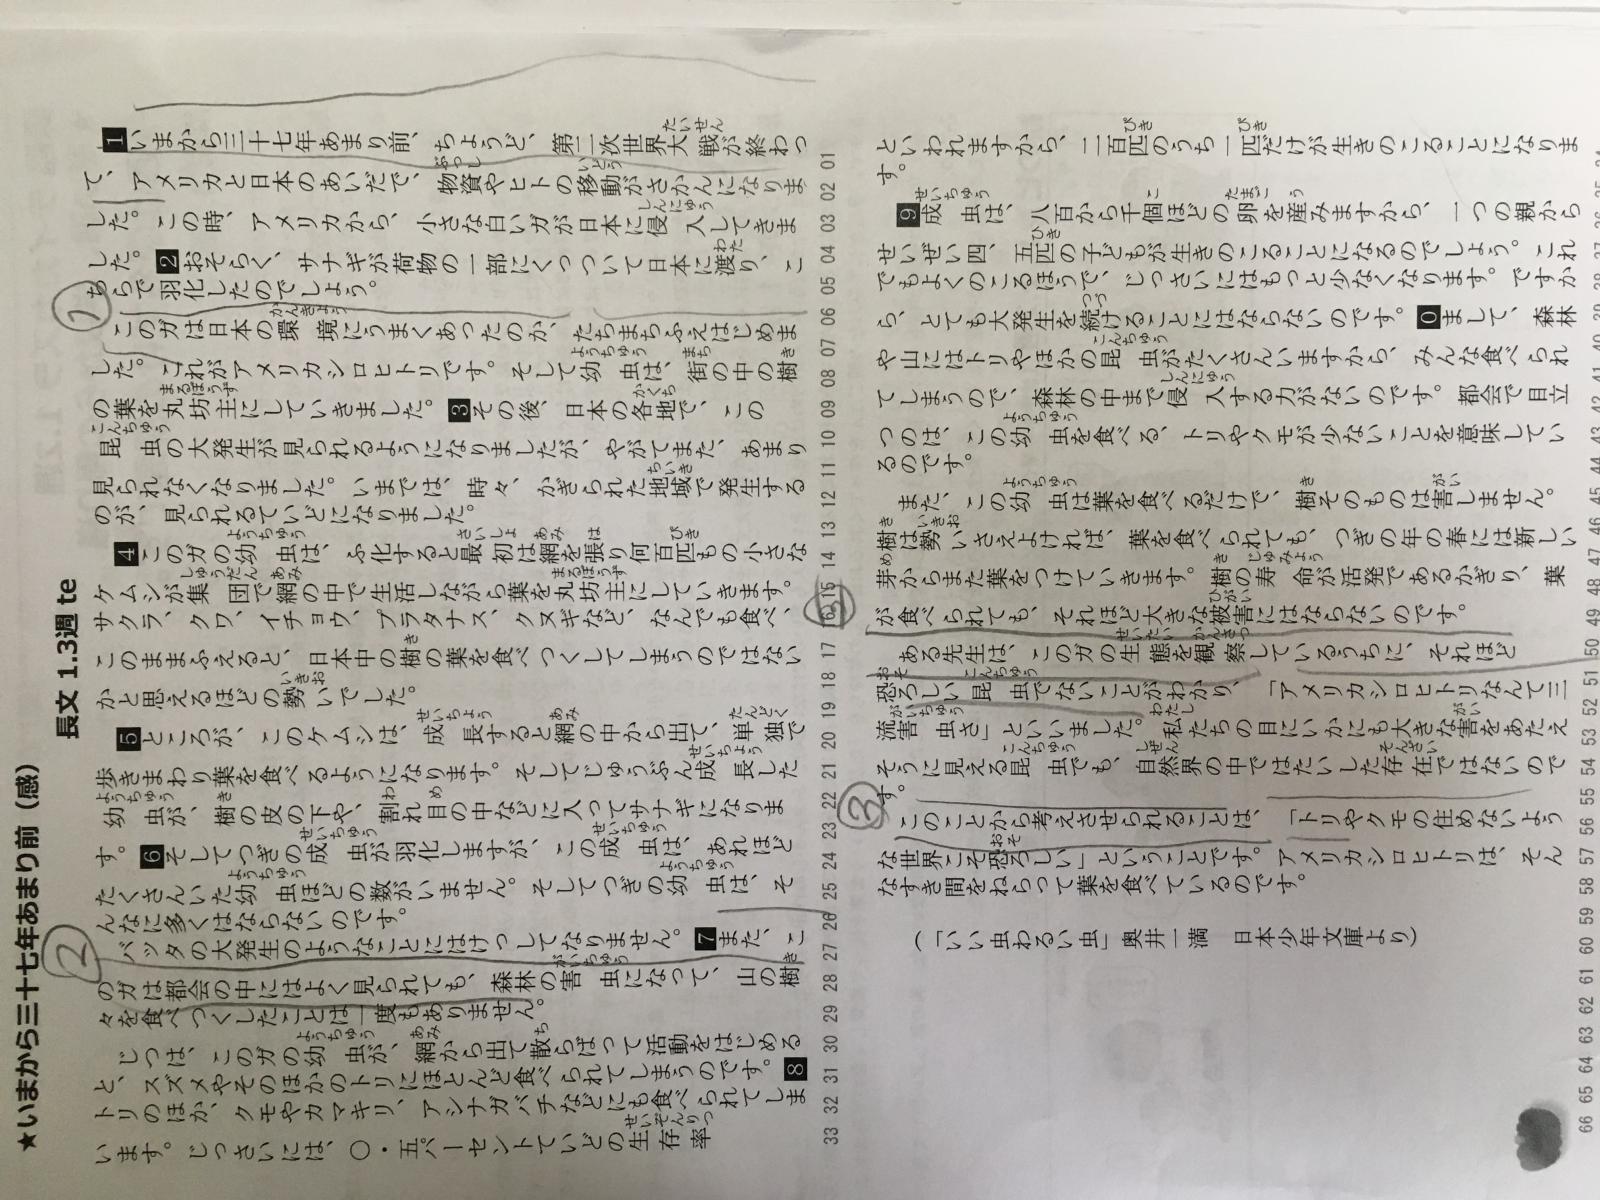 ★いまから三十七年あまり前(感)　長文 1.3週 te
1いまから三十七年あまり前、ちょうど、第二次世界大戦が終わっ
て、アメリカと日本のあいだで、物資やヒトの移動がさかんになりま
した。この時、アメリカから、小さな白いガが日本に侵入してきま
した。2おそらく、サナギが荷物の一部にくっついて日本に渡り、こ
ちらで羽化したのでしょう。
このガは日本の環境にうまくあったのか、たちまちふえはじめま
した。これがアメリカシロヒトリです。そして幼虫は、街の中の樹
の葉を丸坊主にしていきました。3その後、日本の各地で、この
昆虫の大発生が見られるようになりましたが、やがてまた、あまり
見られなくなりました。いまでは、時々、かぎられた地域で発生する
のが、見られるていどになりました。
4このガの幼虫は、ふ化すると最初は網を張り何百匹もの小さな
ケムシが集団で網の中で生活しながら葉を丸坊主にしていきます。
サクラ、クワ、イチョウ、プラタナス、クヌギなど、なんでも食べ、
このままふえると、日本中の樹の葉を食べつくしてしまうのではない
かと思えるほどの勢いでした。
5ところが、このケムシは、成長すると網の中から出て、単独で
歩きまわり葉を食べるようになります。そしてじゅうぶん成長した
幼虫が、樹の皮の下や、割れ目の中などに入ってサナギになりま
す。6そしてつぎの成虫が羽化しますが、この成虫は、あれほど
たくさんいた幼虫ほどの数がいません。そしてつぎの幼虫は、そ
んなに多くはならないのです。
バッタの大発生のようなことにはけっしてなりません。7また、こ
のガは都会の中にはよく見られても、森林の害虫になって、山の樹
々を食べつくしたことは一度もありません。
じつは、このガの幼虫が、網から出て散らばって活動をはじめる
と、スズメやそのほかのトリにほとんど食べられてしまうのです。8
トリのほか、クモやカマキリ、アシナガバチなどにも食べられてしま
います。じっさいには、〇・五パーセントていどの生存率
といわれますから、二百匹のうち一匹だけが生きのこることになりま
す。
9成虫は、八百から千個ほどの卵を産みますから、一つの親から
せいぜい四、五匹の子どもが生きのこることになるのでしょう。これ
でもよくのこるほうで、じっさいにはもっと少なくなります。ですか
ら、とても大発生を続けることにはならないのです。0まして、森林
や山にはトリやほかの昆虫がたくさんいますから、みんな食べられ
てしまうので、森林の中まで侵入する力がないのです。都会で目立
つのは、この幼虫を食べる、トリやクモが少ないことを意味してい
るのです。
また、この幼虫は葉を食べるだけで、樹そのものは害しません。
樹は勢いさえよければ、葉を食べられても、つぎの年の春には新しい
芽からまた葉をつけていきます。樹の寿命が活発であるかぎり、葉
が食べられても、それほど大きな被害にはならないのです。
ある先生は、このガの生態を観察しているうちに、それほど
恐ろしい昆虫でないことがわかり、「アメリカシロヒトリなんて三
流害虫さ」といいました。私たちの目にいかにも大きな害をあたえ
そうに見える昆虫でも、自然界の中ではたいした存在ではないので
す。
このことから考えさせられることは、「トリやクモの住めないよう
な世界こそ恐ろしい」ということです。アメリカシロヒトリは、そん
なすき間をねらって葉を食べているのです。
(「いい虫わるい虫」奥井一満　日本少年文庫より)